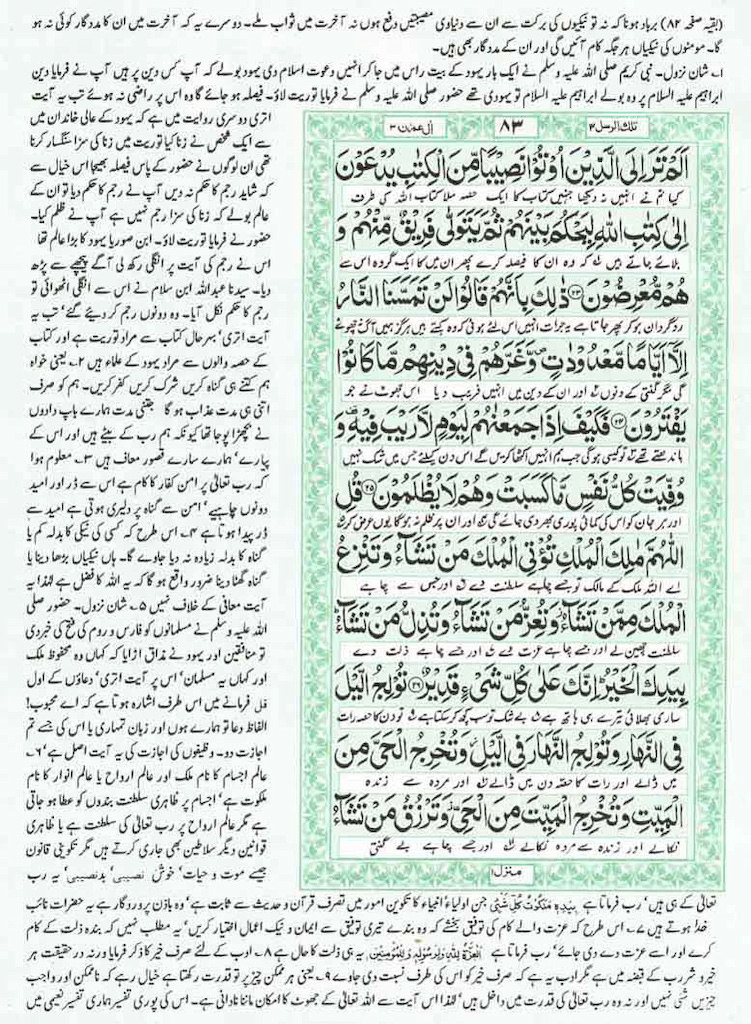 (بقیہ صفحہ ۸۲) برباد ہونا کہ نہ تو نیکیوں کی برکت سے ان سے دنیاوی مصیبتیں دفع ہوں نہ آخرت میں ثواب ملے۔ دوسرے یہ کہ آخرت میں ان کا مددگار کوئی نہ ہو
گا۔ مومنوں کی نیکیاں ہر جگہ کام آئیں گی اور ان کے مددگار بھی ہیں۔
۱۔ شان نزول۔ نبی کریم صلی اللہ علیہ وسلم نے ایک بار یہود کے بیت راس میں جا کر انہیں دعوت اسلام دی یہود بولے کہ آپ کس دین پر ہیں آپ نے فرمایا دین
ابراہیم علیہ السلام پر وہ بولے ابراہیم علیہ السلام تو یہودی تھے حضور صلی اللہ علیہ وسلم نے فرمایا توریت لاؤ۔ فیصلہ ہو جائے گا وہ اس پر راضی نہ ہوئے تب یہ آیت
تلك الرسل ۳
۸۳
ال عمرٰن ۳
اَلَمْ تَرَ اِلَى الَّذِيْنَ اُوْتُوْا نَصِيْبًا مِّنَ الْكِتٰبِ يُدْعَوْنَ
کیا تم نے انہیں نہ دیکھا جنہیں کتاب کا ایک حصہ ملا کتاب اللہ کی طرف
اِلٰى كِتٰبِ اللّٰهِ لِيَحْكُمَ بَيْنَهُمْ ثُمَّ يَتَوَلّٰى فَرِيْقٌ مِّنْهُمْ وَ
بلائے جاتے ہیں کہ وہ ان کا فیصلہ کرے پھر ان میں کا ایک گروہ اس سے
هُمْ مُّعْرِضُوْنَ ۲۳ ذٰلِكَ بِاَنَّهُمْ قَالُوْا لَنْ تَمَسَّنَا النَّارُ
روگرداں ہو کر پھر جاتا ہے یہ جرات انہیں اس لئے ہوئی کہ وہ کہتے ہیں ہرگز ہمیں آگ نہ چھوئے
اِلَّاۤ اَيَّامًا مَّعْدُوْدٰتٍ وَّغَرَّهُمْ فِيْ دِيْنِهِمْ مَّا كَانُوْا
گی مگر گنتی کے دنوں اور ان کے دین میں انہیں فریب دیا اس جھوٹ نے جو
يَفْتَرُوْنَ ۲۴ فَكَيْفَ اِذَا جَمَعْنٰهُمْ لِيَوْمٍ لَّا رَيْبَ فِيْهِ وَ
باندھتے تھے تو کیسی ہوگی جب ہم انہیں اکٹھا کریں گے اس دن کیلئے جس میں شک نہیں
وُفِّيَتْ كُلُّ نَفْسٍ مَّا كَسَبَتْ وَهُمْ لَا يُظْلَمُوْنَ ۲۵ قُلِ
اور ہر جان کو اس کی کمائی پوری بھر دی جائے گی اور ان پر ظلم نہ ہوگا یوں عرض کر
اللّٰهُمَّ مٰلِكَ الْمُلْكِ تُؤْتِي الْمُلْكَ مَنْ تَشَآءُ وَتَنْزِعُ
اے اللہ ملک کے مالک تو جسے چاہے سلطنت دے اور جس سے چاہے
الْمُلْكَ مِمَّنْ تَشَآءُ وَتُعِزُّ مَنْ تَشَآءُ وَتُذِلُّ مَنْ تَشَآءُ
سلطنت چھین لے اور جسے چاہے عزت دے اور جسے چاہے ذلت دے
بِيَدِكَ الْخَيْرُ اِنَّكَ عَلٰى كُلِّ شَيْءٍ قَدِيْرٌ ۲۶ تُوْلِجُ الَّيْلَ
ساری بھلائی تیرے ہی ہاتھ ہے بے شک تو سب کچھ کر سکتا ہے تو دن کا حصہ رات
فِي النَّهَارِ وَتُوْلِجُ النَّهَارَ فِي الَّيْلِ وَتُخْرِجُ الْحَيَّ مِنَ
میں ڈالے اور رات کا حصہ دن میں ڈالے اور مردہ سے زندہ
الْمَيِّتِ وَتُخْرِجُ الْمَيِّتَ مِنَ الْحَيِّ وَتَرْزُقُ مَنْ تَشَآءُ
نکالے اور زندہ سے مردہ نکالے اور جسے چاہے بے گنتی
منزل ۱
اتری دوسری روایت میں ہے کہ یہود کے عالی خاندان میں
سے ایک شخص نے زنا کیا توریت میں زنا کی سزا سنگسار کرنا
تھی ان لوگوں نے حضور کے پاس فیصلہ بھیجا اس خیال سے
کہ شاید رجم کا حکم نہ دیں آپ نے رجم کا حکم دیا تو ان کے
عالم بولے کہ زنا کی سزا رجم نہیں ہے آپ نے ظلم کیا۔
حضور نے فرمایا توریت لاؤ۔ ابن صوریا یہود کا بڑا عالم تھا
اس نے رجم کی آیت پر انگلی رکھ لی آگے پیچھے سے پڑھ
دیا۔ سیدنا عبداللہ ابن سلام نے اس سے انگلی اٹھوائی تو
رجم کا حکم نکل آیا۔ وہ دونوں رجم کر دیئے گئے، تب یہ
آیت اتری، بہرحال کتاب سے مراد توریت ہے اور کتاب
کے حصہ والوں سے مراد یہود کے علماء ہیں ۲۔ یعنی خواہ
ہم کتنے ہی گناہ کریں شرک کریں کفر کریں۔ ہم کو صرف
اتنی ہی مدت عذاب ہو گا جتنی مدت ہمارے باپ دادوں
نے بچھڑا پوجا تھا کیونکہ ہم رب کے بیٹے ہیں اور اس کے
پیارے، ہمارے سارے قصور معاف ہیں ۳۔ معلوم ہوا
کہ رب تعالٰی پر امن کفار کا کام ہے اس سے ڈر اور امید
دونوں چاہیے، امن سے گناہ پر دلیری ہوتی ہے امید سے
ڈر پیدا ہوتا ہے ۴۔ اس طرح کہ کسی کی نیکی کا بدلہ کم یا
گناہ کا بدلہ زیادہ نہ دیا جاوے گا۔ ہاں نیکیاں بڑھا دینا یا
گناہ گھٹا دینا ضرور واقع ہو گا کہ یہ اللہ کا فضل ہے لہٰذا یہ
آیت معافی کے خلاف نہیں ۵۔ شان نزول۔ حضور صلی
اللہ علیہ وسلم نے مسلمانوں کو فارس و روم کی فتح کی خبر دی
تو منافقین اور یہود نے مذاق اڑایا کہ کہاں وہ محفوظ ملک
اور کہاں یہ مسلمان، اس پر آیت اتری، دعاؤں کے اول
قل فرمانے میں اس طرف اشارہ ہوتا ہے کہ اے محبوب!
الفاظ دعا تو ہمارے ہوں اور زبان تمہاری یا اس کی جسے تم
اجازت دو۔ وظیفوں کی اجازت کی یہ آیت اصل ہے، ۶۔
عالم اجسام کا نام ملک اور عالم ارواح یا عالم انوار کا نام
ملکوت ہے، اجسام پر ظاہری سلطنت بندوں کو عطا ہو جاتی
ہے مگر عالم ارواح پر رب تعالٰی کی سلطنت ہے یا ظاہری
قوانین دیگر سلاطین بھی جاری کرتے ہیں مگر تکوینی قانون
جیسے موت و حیات، خوش نصیبی، بدنصیبی، یہ رب
تعالٰی کے ہی ہیں، رب فرماتا ہے بِيَدِهٖ مَلَكُوْتُ كُلِّ شَيْءٍ جن اولیاء انبیاء کا تکوین امور میں تصرف قرآن و حدیث سے ثابت ہے، وہ باذن پروردگار ہے یہ حضرات نائب
خدا ہوتے ہیں ۷۔ اس طرح کہ عزت والے کام کی توفیق بخشے کہ وہ بندے تیری توفیق سے ایمان و نیک اعمال اختیار کریں، یہ مطلب نہیں کہ بندہ ذلت کے کام
کرے اور اسے عزت دے دی جائے، رب فرماتا ہے اَلْعِزَّةُ لِلّٰهِ وَلِرَسُوْلِهٖ وَلِلْمُؤْمِنِيْنَ یہ ہی ذلت کا حال ہے ۸۔ ادب کے لئے صرف خیر کا ذکر فرمایا ورنہ در حقیقت ہر
خیر و شر رب کے قبضہ میں ہے مگر ادب یہ ہے کہ صرف خیر کو اس کی طرف نسبت دی جاوے ۹۔ یعنی ہر ممکن چیز پر تو قدرت رکھتا ہے خیال رہے کہ ناممکن اور واجب
چیزیں شئی نہیں اور نہ وہ رب تعالٰی کی قدرت میں داخل ہیں، لہٰذا اس آیت سے اللہ تعالٰی کے جھوٹ کا امکان ماننا نادانی ہے۔ اس کی پوری تفسیر ہماری تفسیر نعیمی میں